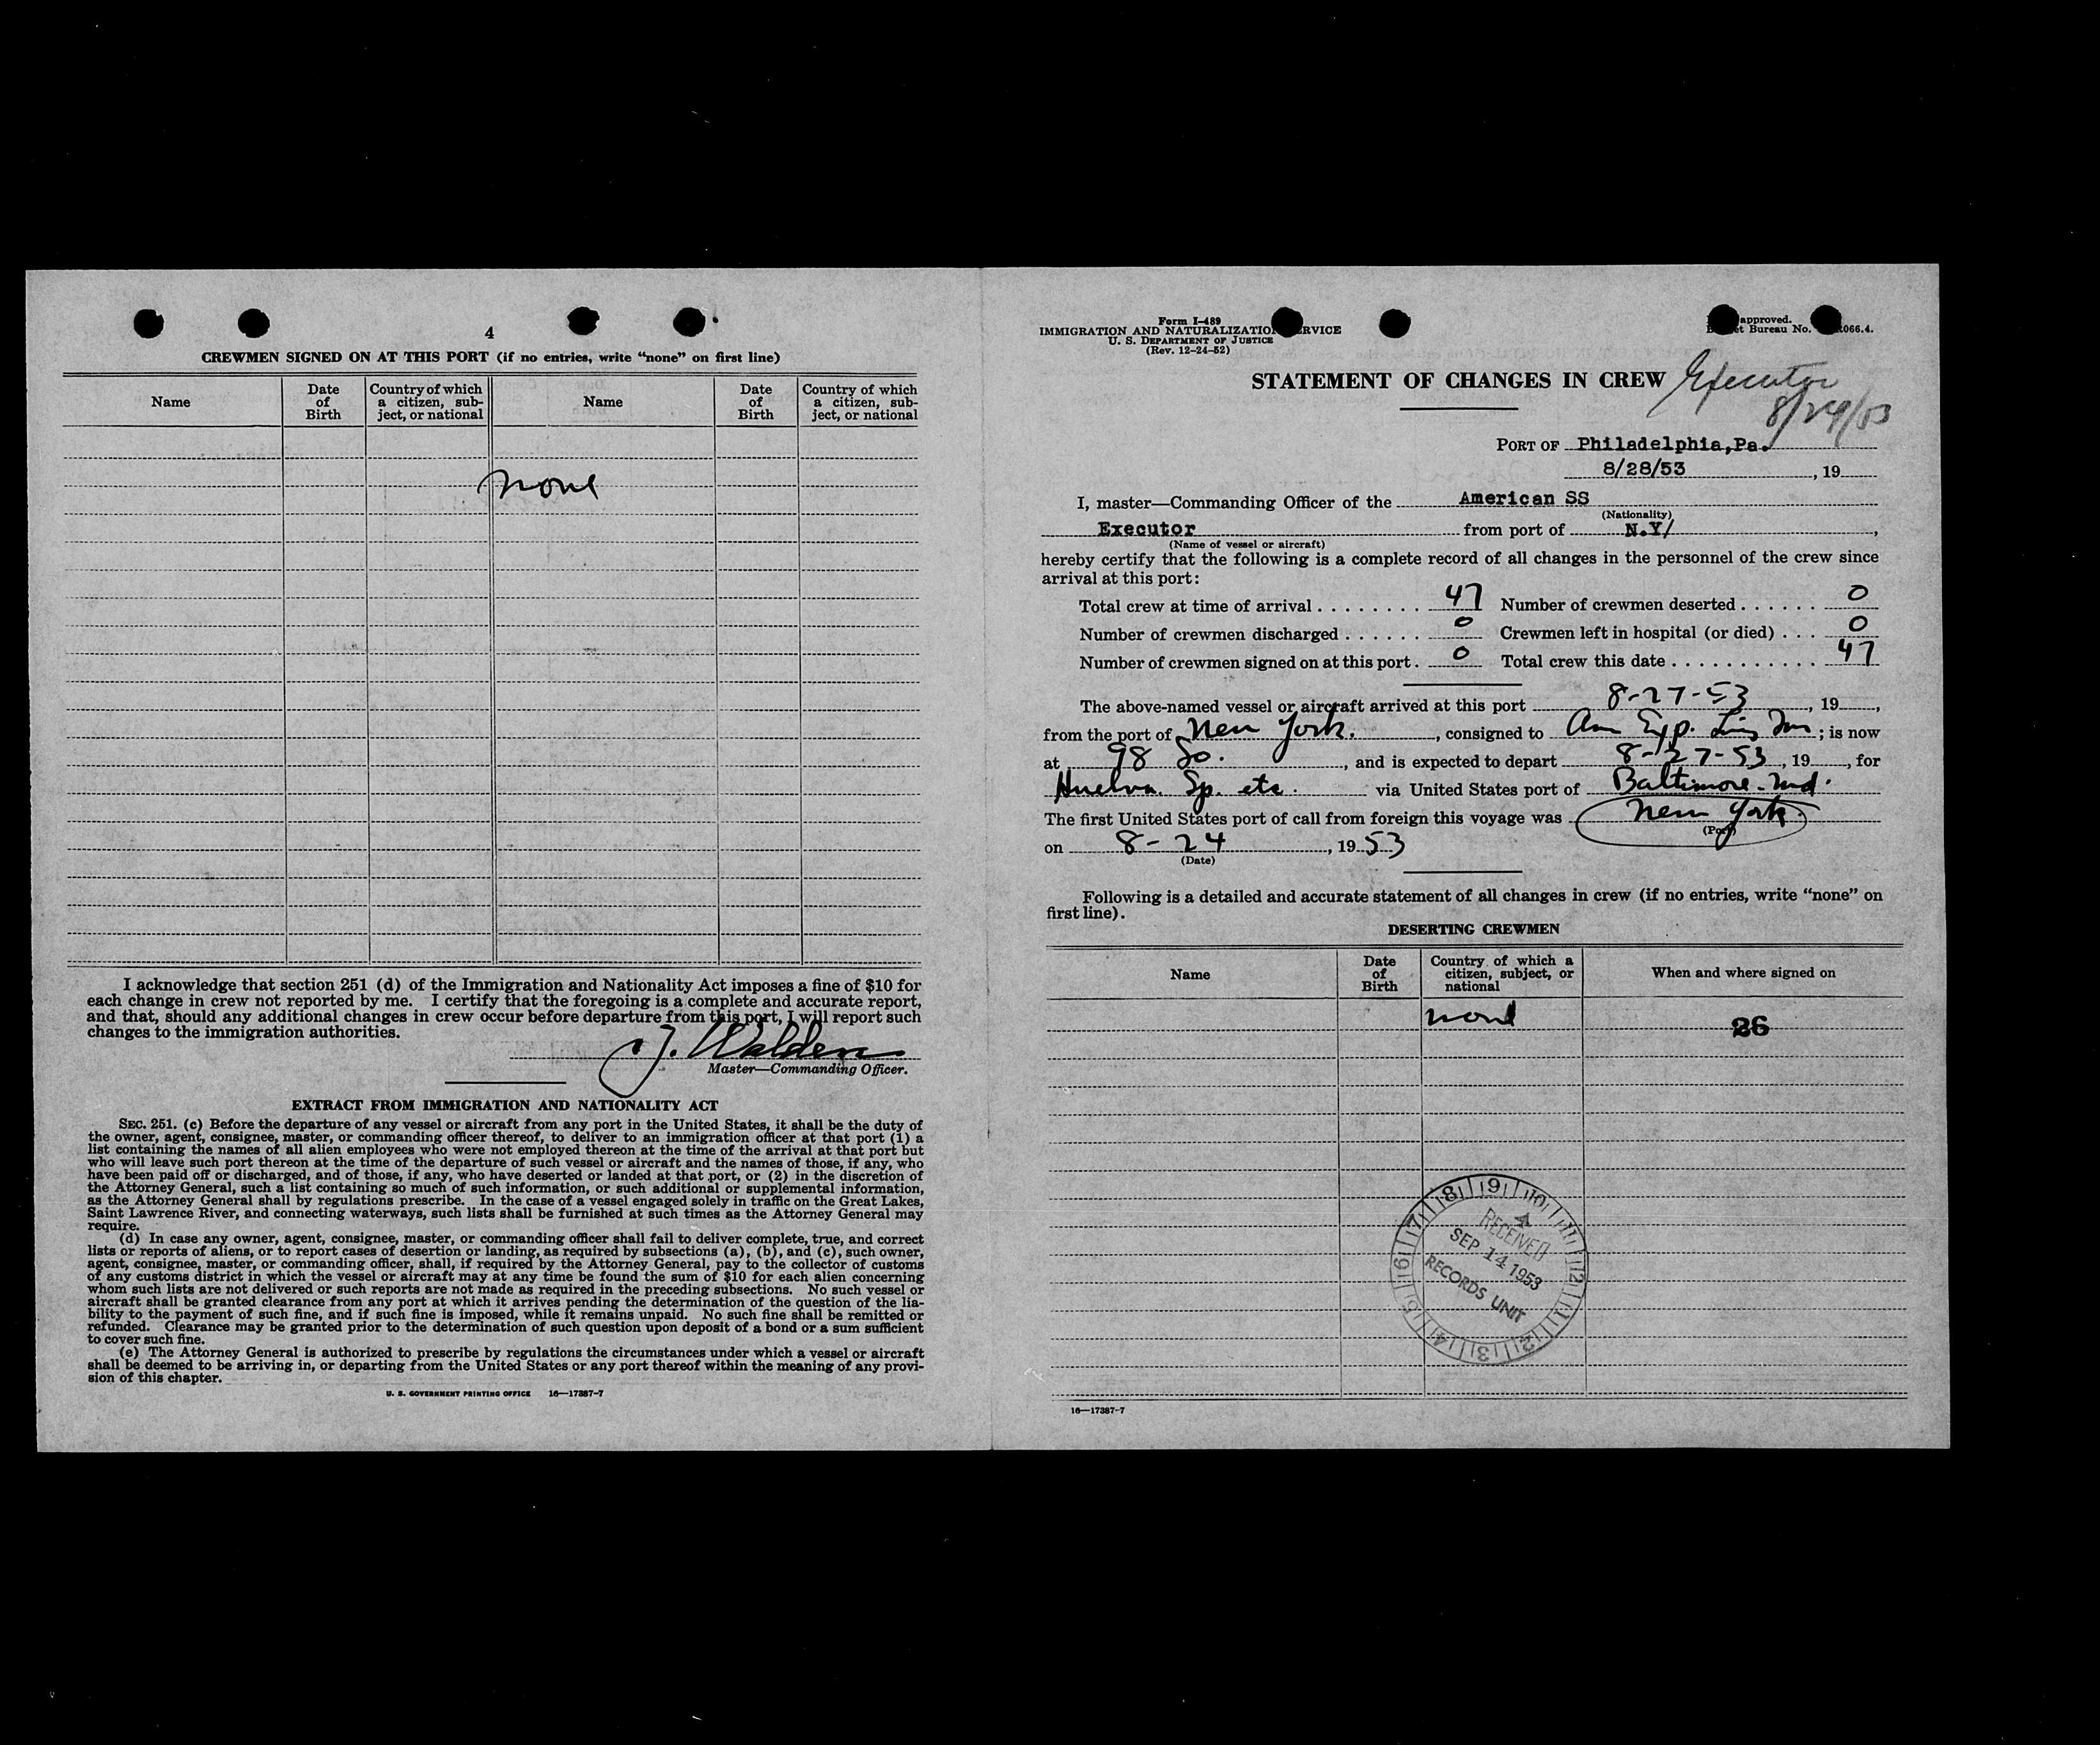 4
CREWMEN SIGNED ON AT THIS PORT (if no entries, write “none” on first line)
Name
Date of Birth
Country of which a citizen, sub-ject, or national
Name
Date of Birth
Country of which a citizen, sub-ject, or national
none
I acknowledge that section 251 (d) of the Immigration and Nationality Act imposes a fine of $10 for
each change in crew not reported by me. I certify that the foregoing is a complete and accurate report,
and that, should any additional changes in crew occur before departure from this port, I will report such
changes to the immigration authorities.
J. Walden
Master—Commanding Officer.
EXTRACT FROM IMMIGRATION AND NATIONALITY ACT
SEC. 251. (c) Before the departure of any vessel or aircraft from any port in the United States, it shall be the duty of
the owner, agent, consignee, master, or commanding officer thereof, to deliver to an immigration officer at that port (1) a
list containing the names of all alien employees who were not employed thereon at the time of the arrival at that port but
who will leave such port thereon at the time of the departure of such vessel or aircraft and the names of those, if any, who
have been paid off or discharged, and of those, if any, who have deserted or landed at that port, or (2) in the discretion of
the Attorney General, such a list containing so much of such information, or such additional or supplemental information,
as the Attorney General shall by regulations prescribe. In the case of a vessel engaged solely in traffic on the Great Lakes,
Saint Lawrence River, and connecting waterways, such lists shall be furnished at such times as the Attorney General may
require.
(d) In case any owner, agent, consignee, master, or commanding officer shall fail to deliver complete, true, and correct
lists or reports of aliens, or to report cases of desertion or landing, as required by subsections (a), (b), and (c), such owner,
agent, consignee, master, or commanding officer, shall, if required by the Attorney General, pay to the collector of customs
of any customs district in which the vessel or aircraft may at any time be found the sum of $10 for each alien concerning
whom such lists are not delivered or such reports are not made as required in the preceding subsections. No such vessel or
aircraft shall be granted clearance from any port at which it arrives pending the determination of the question of the lia-
bility to the payment of such fine, and if such fine is imposed, while it remains unpaid. No such fine shall be remitted or
refunded. Clearance may be granted prior to the determination of such question upon deposit of a bond or a sum sufficient
to cover such fine.
(e) The Attorney General is authorized to prescribe by regulations the circumstances under which a vessel or aircraft
shall be deemed to be arriving in, or departing from the United States or any port thereof within the meaning of any provi-
sion of this chapter.
U. S. GOVERNMENT PRINTING OFFICE 16—17387-7
Form I-489
IMMIGRATION AND NATURALIZATIO RVICE
U. S. DEPARTMENT OF JUSTICE
(Rev. 12-24-52)
approved.
et Bureau No. 066.4.
STATEMENT OF CHANGES IN CREW
Executor
8/24/53
PORT OF Philadelphia,Pa.
8/28/53, 19
I, master—Commanding Officer of the American SS
(Nationality)
Executor from port of N.Y/,
(Name of vessel or aircraft)
hereby certify that the following is a complete record of all changes in the personnel of the crew since
arrival at this port:
Total crew at time of arrival . . . . . . . . 47 Number of crewmen deserted . . . . . . 0
Number of crewmen discharged . . . . . . 0 Crewmen left in hospital (or died) . . . 0
Number of crewmen signed on at this port . 0 Total crew this date . . . . . . . . . . . 47
The above-named vessel or aircraft arrived at this port 8-27-53, 19,
from the port of New York., consigned to Am Exp. Lins Inc; is now
at 98 So., and is expected to depart 8-27-53, 19, for
Huelva. Sp. etc. via United States port of Baltimore. Md.
The first United States port of call from foreign this voyage was New York.
(Port)
on 8-24, 1953
(Date)
Following is a detailed and accurate statement of all changes in crew (if no entries, write “none” on
first line).
DESERTING CREWMEN
Name
Date of Birth
Country of which a citizen, subject, or national
When and where signed on
none
26
8 9 10 11 12 1 2 3 4 5 6 7
RECEIVED
SEP 14 1953
RECORDS UNIT
16—17387-7